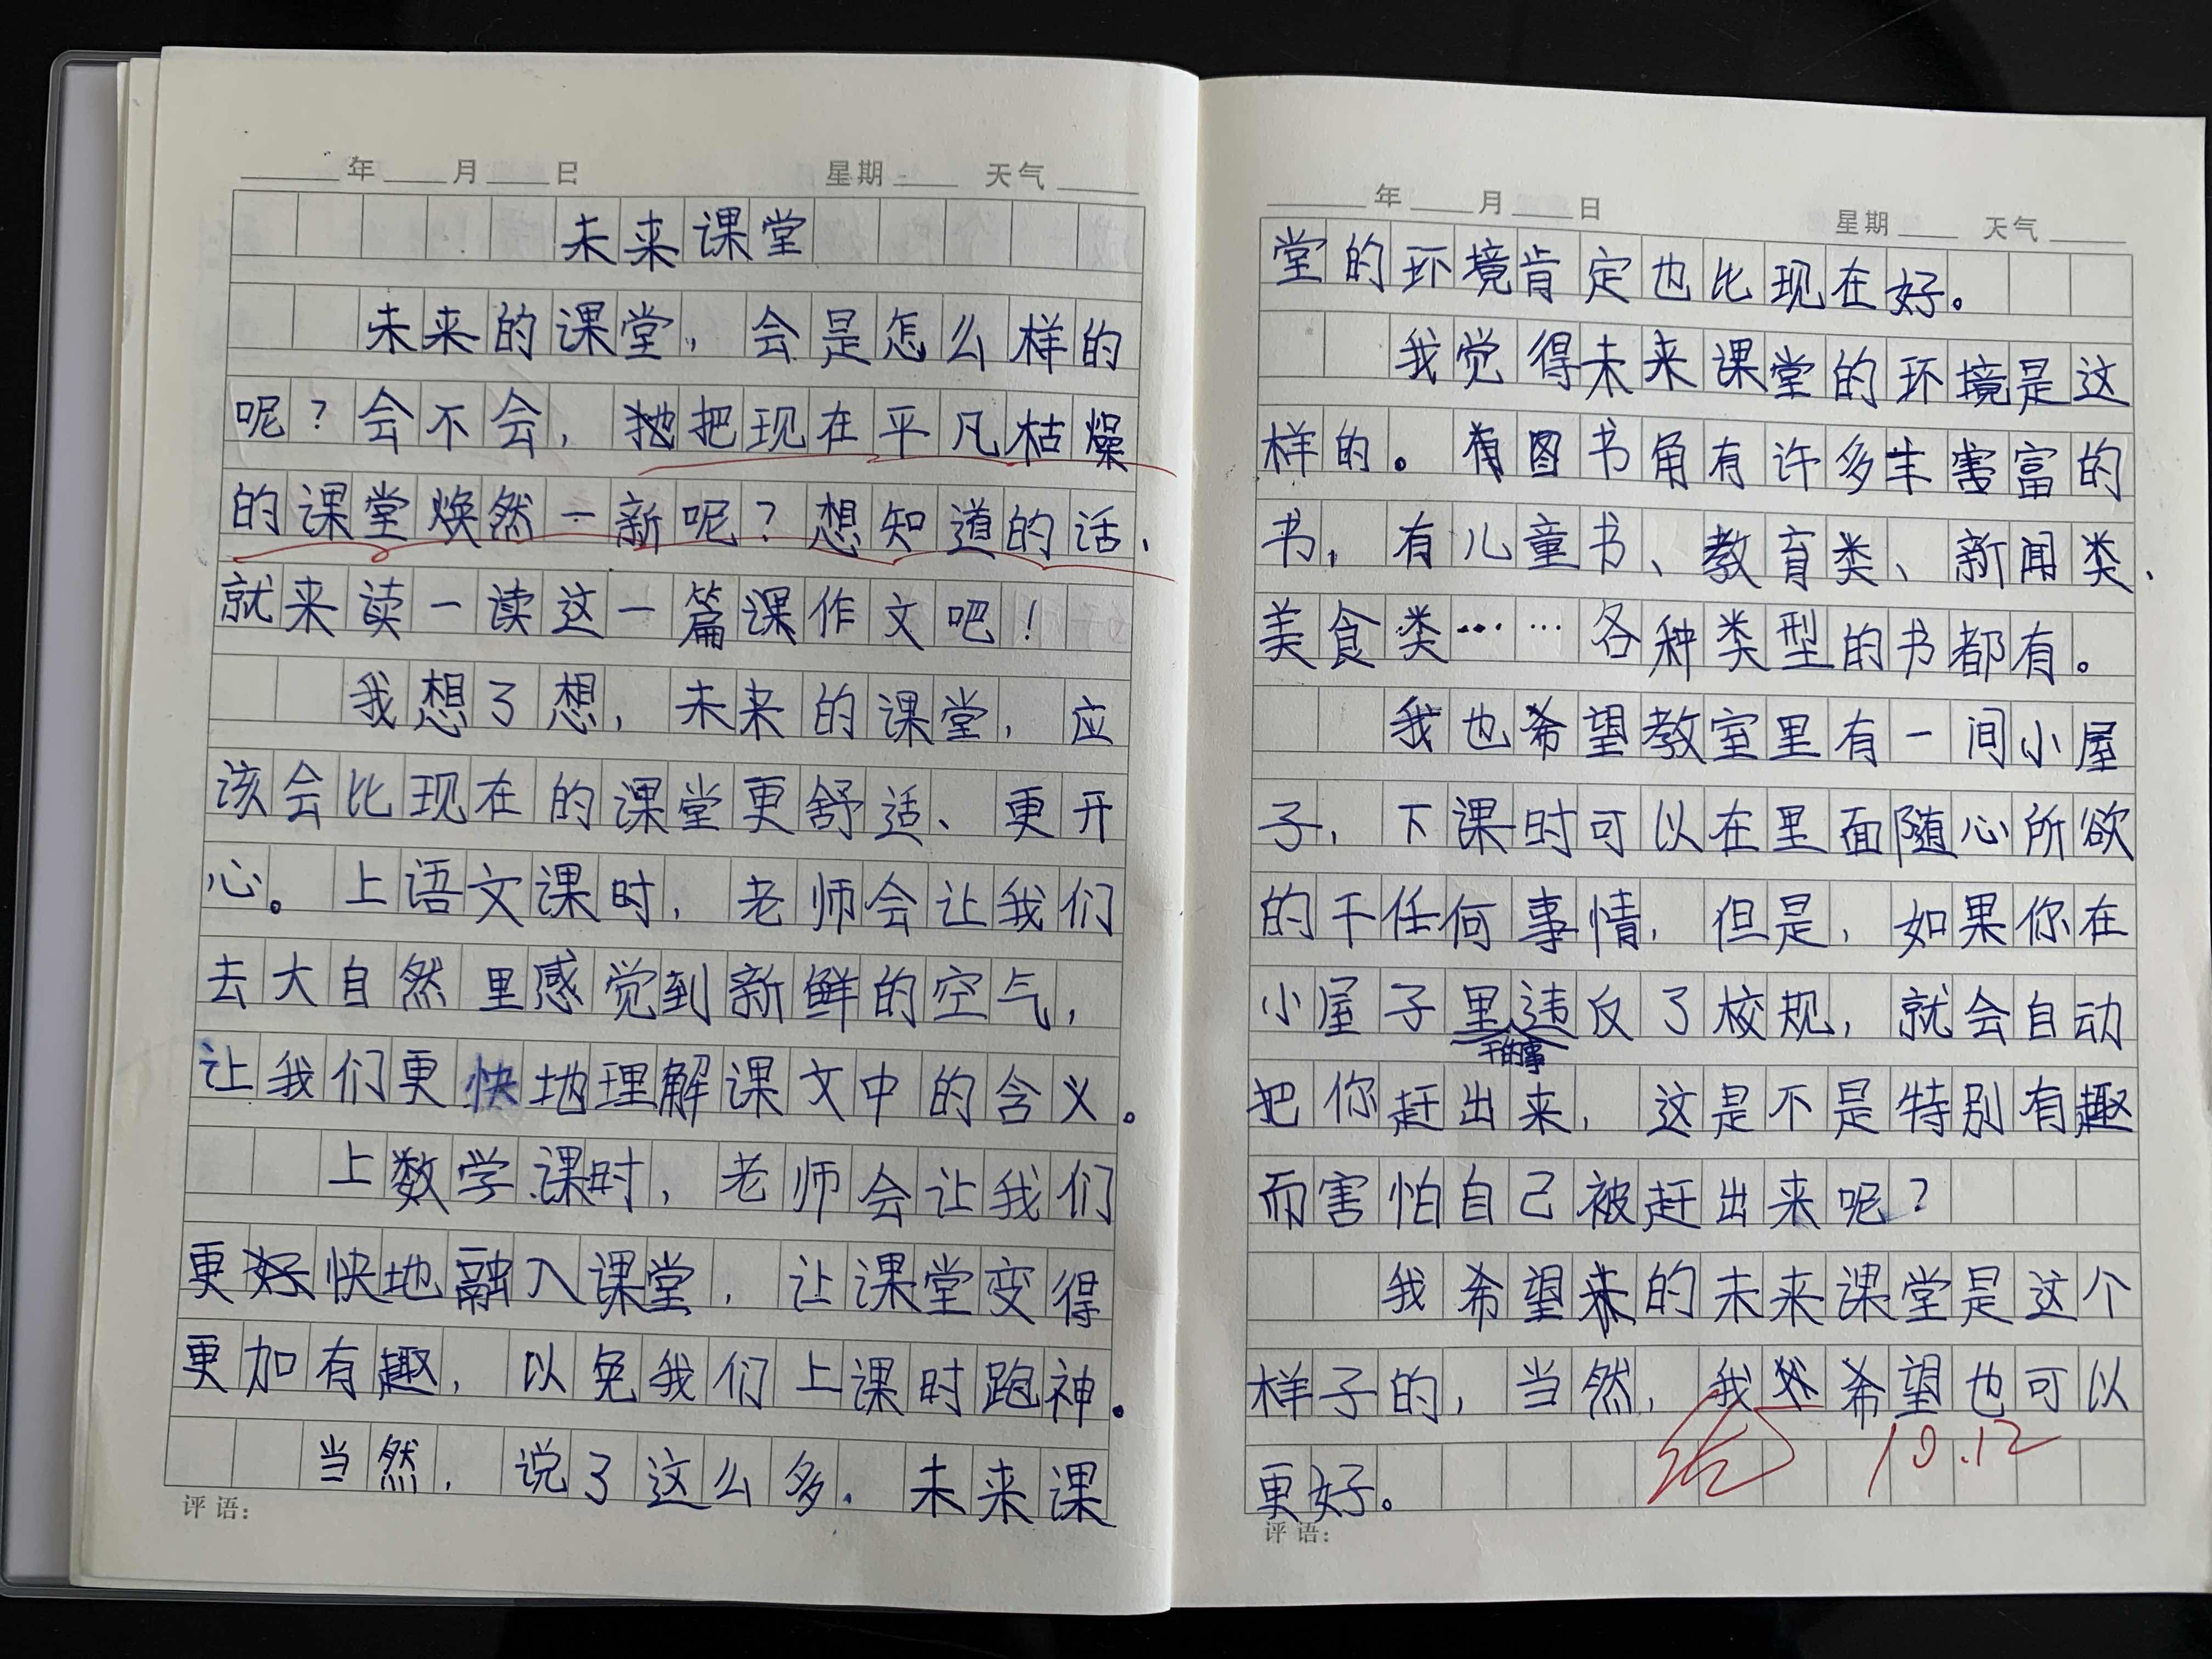 年 月 日 星期 天气
未来课堂
未来的课堂，会是怎么样的
呢？会不会，把现在平凡枯燥
的课堂焕然一新呢？想知道的话，
就来读一读这一篇课作文吧！
我想了想，未来的课堂，应
该会比现在的课堂更舒适、更开
心。上语文课时，老师会让我们
去大自然里感觉到新鲜的空气，
让我们更快地理解课文中的含义。
上数学课时，老师会让我们
更快地融入课堂，让课堂变得
更加有趣，以免我们上课时跑神。
当然，说了这么多，未来课
评语：
年 月 日 星期 天气
堂的环境肯定也比现在好。
我觉得未来课堂的环境是这
样的。有图书角有许多丰富的
书，有儿童书、教育类、新闻类、
美食类……各种类型的书都有。
我也希望教室里有一间小屋
子，下课时可以在里面随心所欲
的干任何事情，但是，如果你在
小屋子里干的事违反了校规，就会自动
把你赶出来，这是不是特别有趣
而害怕自己被赶出来呢？
我希望的未来课堂是这个
样子的，当然，我希望也可以
更好。
10.12
评语：